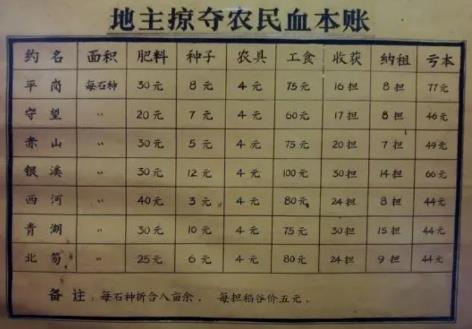 地主掠夺农民血本账
约名 面积 肥料 种子 农具 工食 收获 纳租 亏本
平岗 每石种 30元 8元 4元 75元 16担 8担 77元
守望 〃 20元 7元 4元 60元 17担 8担 46元
赤山 〃 30元 5元 4元 75元 20担 7担 49元
银溪 〃 30元 12元 4元 100元 30担 14担 66元
西河 〃 40元 3元 4元 80元 24担 8担 44元
青湖 〃 30元 10元 4元 75元 30担 15担 44元
北笋 〃 25元 6元 4元 80元 24担 9担 44元
备注:每石种折合八亩余、每担稻谷价五元.